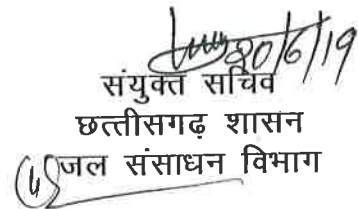 20/6/19
संयुक्त सचिव
छत्तीसगढ़ शासन
जल संसाधन विभाग